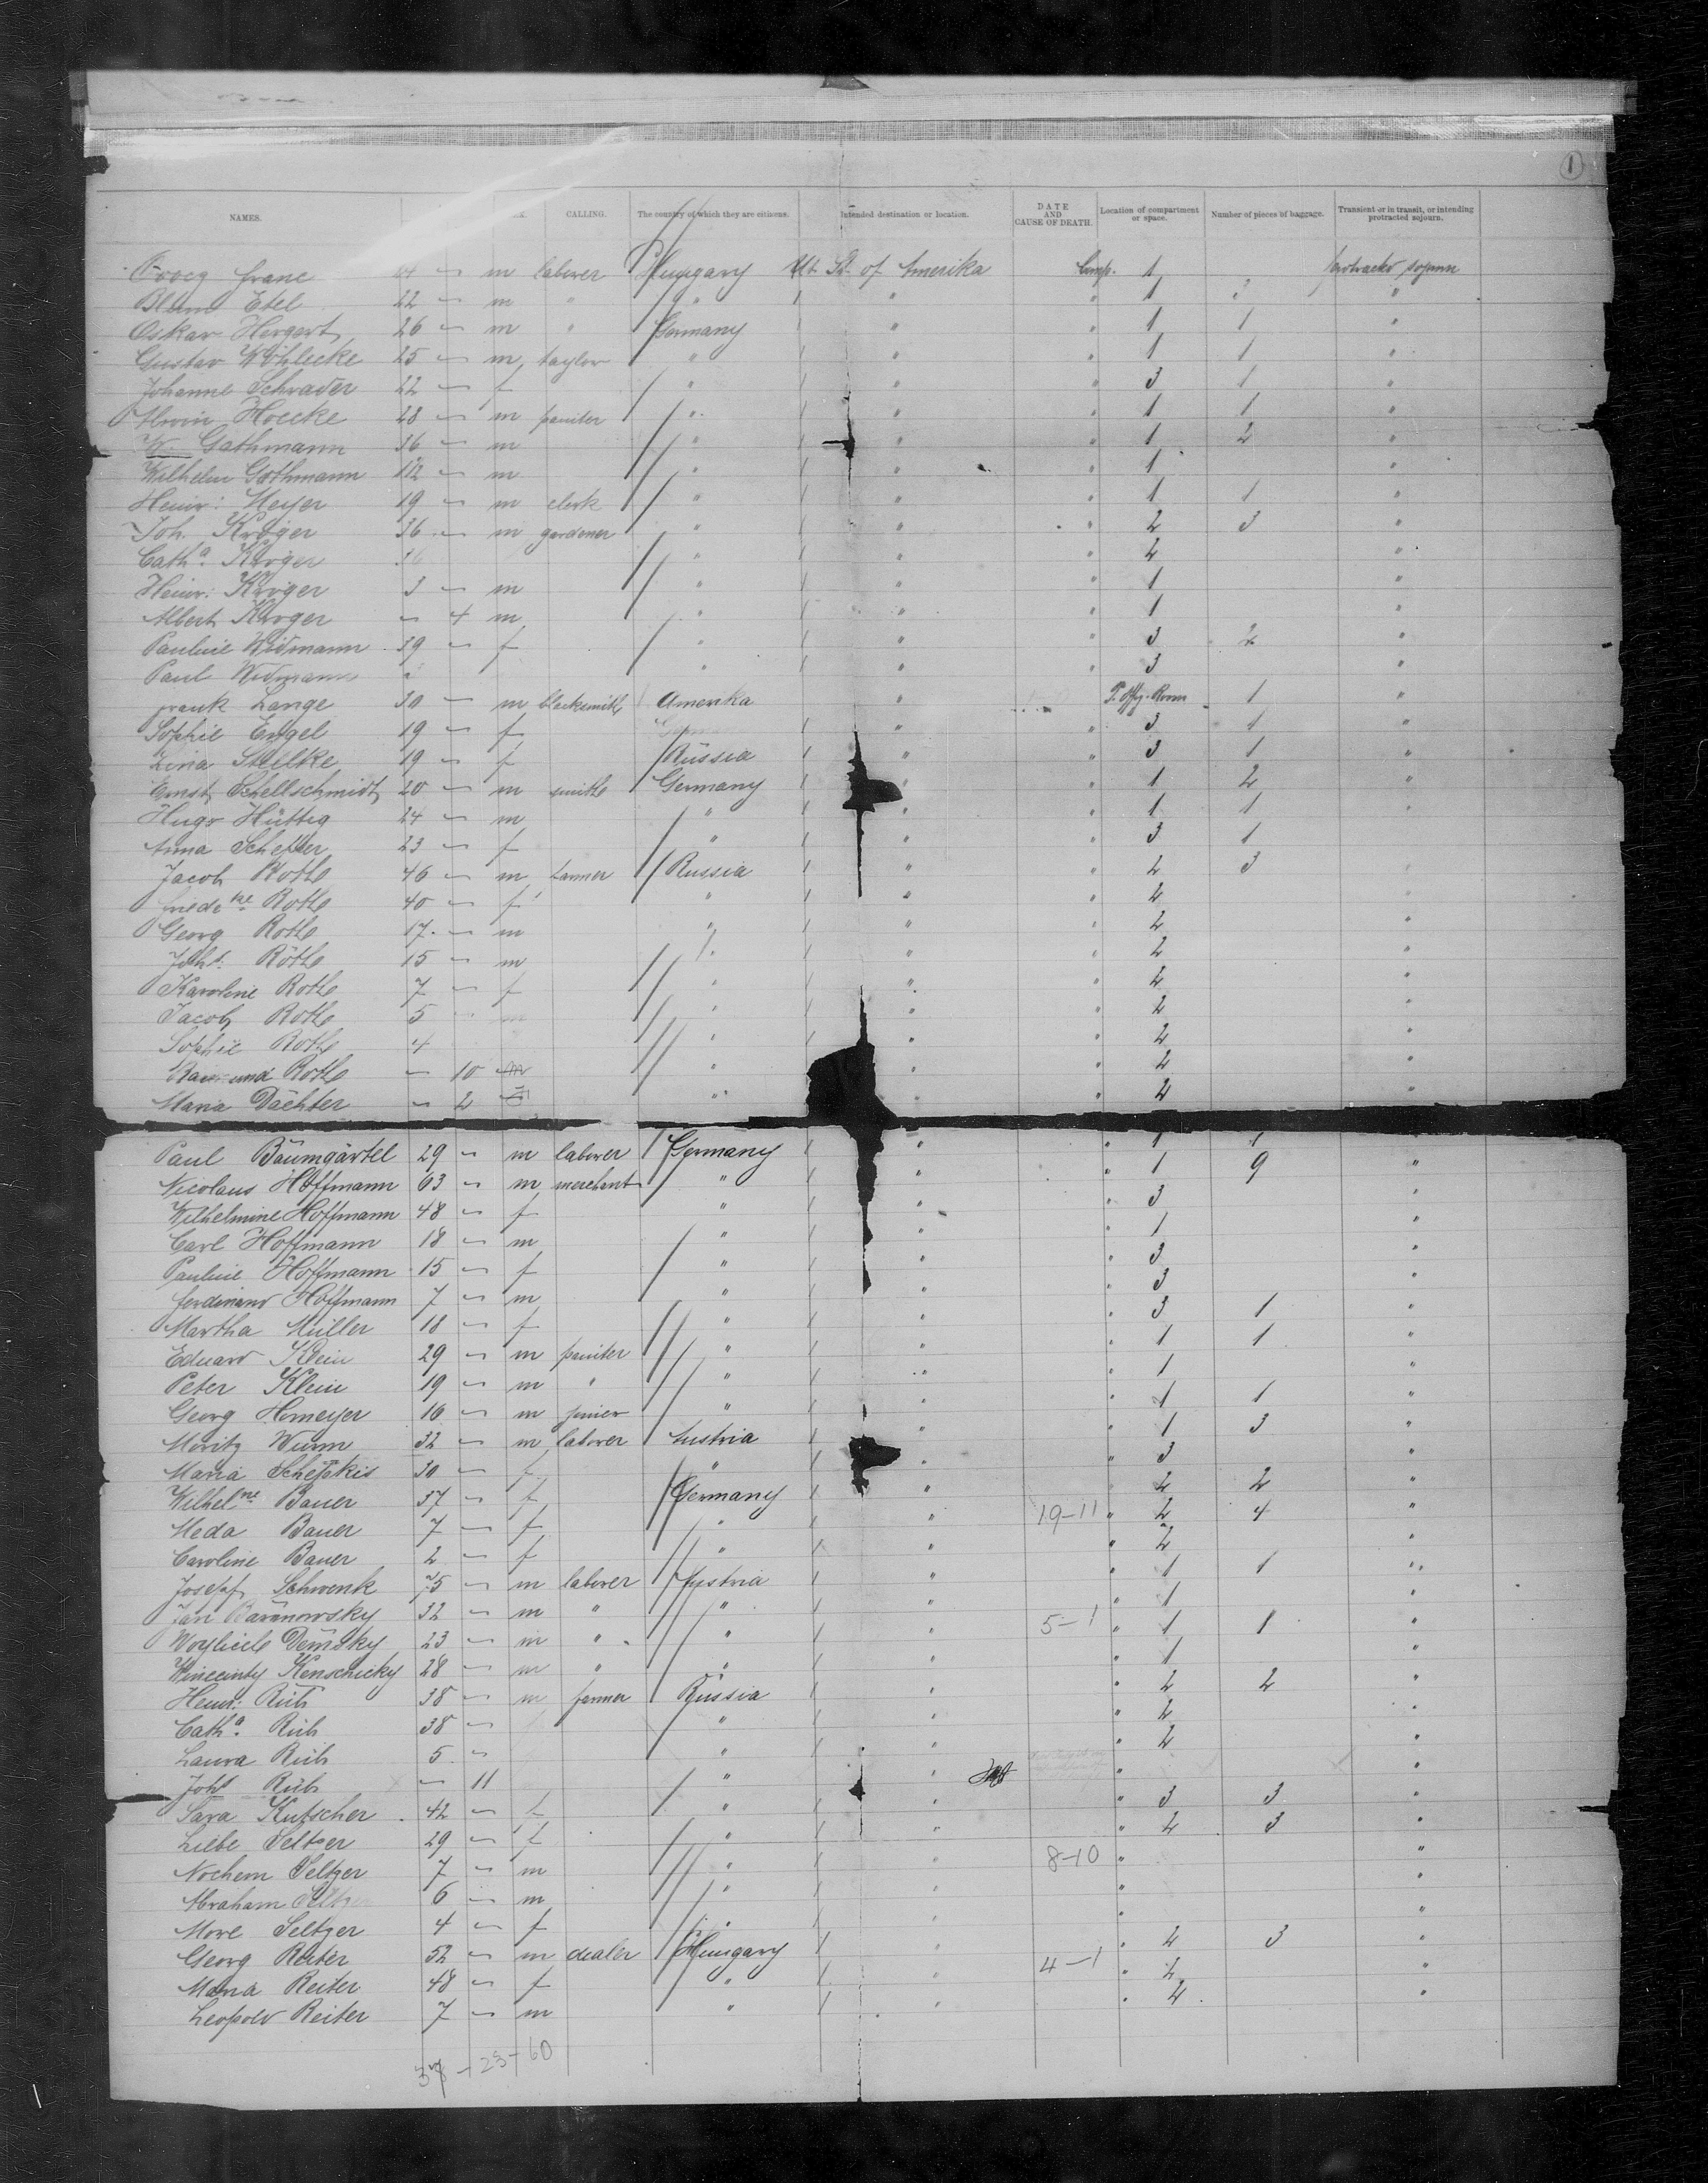 1
NAMES. CALLING. The country of which they are citizens. Intended destination or location. DATE AND CAUSE OF DEATH. Location of compartment or space. Number of pieces of baggage. Transient or in transit, or intending protracted sojourn.
Franc m laborer Hungary Ut. St. of Amerika Comp. 1
Blum Etel 22 — m " " " " 1 3 "
Oskar Hergert 26 — m " Germany " " 1 1 "
Gustav Wöhlecke 25 — m taylor " " " 1 1 "
Johanne Schrader 22 — f " " " 3 1 "
Hoecke 28 — m painter " " " 1 1 "
W. Gathmann 36 — m " " " 1 2 "
Wilhelm Gathmann — m " " " 1 "
Heinr: Meyer 19 — m clerk " " " 1 1 "
Joh. Kröger 36 — m gardener " " " 2 3 "
Cath.a Kröger " " " 2 "
Heinr: Kröger 3 — m " " " 1 "
Albert Kröger — 4 m " " " 1 "
Pauline Widmann 39 — f " " " 3 2 "
Paul Widmann " " " 3 "
Frank Lange 30 — m blacksmith Amerika " Room 1 "
Sophie Engel 19 — f " " 3 1 "
Lina Stellke 19 — f Russia " " 3 1 "
Ernst Schellschmidt 20 — m smith Germany " " 1 2 "
Hugo Hüttig 24 — m " " " 1 1 "
Anna Scheller 23 — f " " " 3 1
Jacob Roth 46 — m farmer Russia " " 2 3
Friedr.ke Roth 40 — f " " " 2
Georg Roth 17 — m " " " 2 "
Joh.s Roth 15 — m " " " 2 "
Karoline Roth 7 — f " " " 2 "
Jacob Roth 5 — m " " " 2 "
Sophie Roth 4 " " " 2 "
Roth — 10 " " " 2 "
Maria Dächter — 2 " " " 2 "
Paul Baumgärtel 29 — m laborer Germany " " 1 1 "
Nicolaus Hoffmann 63 — m merchant " " " 1 9 "
Wilhelmine Hoffmann 48 — f " " " 3 "
Carl Hoffmann 18 — m " " " 1 "
Pauline Hoffmann 15 — f " " " 3 "
Ferdinand Hoffmann 7 — m " " " 3 "
Martha Müller 18 — f " " " 3 1 "
Eduard Klein 29 — m painter " " " 1 1 "
Peter Klein 19 — m " " " " 1 "
Georg Homeyer 16 — m joiner " " " 1 1 "
Moritz Wurm 32 — m laborer Austria " " 1 3 "
Maria 30 — f " " " 3 "
Wilhel.ne Bauer 37 — f Germany " " 2 2 "
Meda Bauer 7 — f " " 19-11 " 2 4 "
Caroline Bauer 2 — f " " " 2 "
Josef Schwenk — m laborer Austria " " 1 1 "
Jan Baranowsky 32 — m " " " " 1 "
Demsky 23 — m " " " 5-1 " 1 1 "
28 — m " " " " 1 "
Heinr: Rüb 38 — m farmer Russia " " 2 2 "
Cath.a Rüb 38 — " " " 2 "
Laura Rüb 5 — " " " 2 "
Joh.s Rüb — 11 " " " "
Sara Kutscher 42 — f " " " 3 3 "
Liebe Seltzer 29 — f " " " 2 3 "
Nochem Seltzer 7 — m " " 8-10 " "
Abraham Seltzer 6 — m " " " "
Seltzer 4 — f " " " "
Georg Reiter 52 — m dealer Hungary " " 2 3 "
Maria Reiter 48 — f " " 4-1 " 2 "
Leopold Reiter 7 — m " " " 2 "
37 - 23 - 60